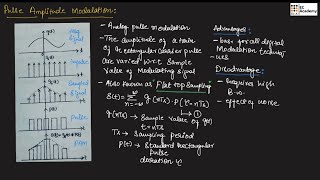 Pulse Amplitude Modulation:
EC Academy
- Analog pulse modulation
- The amplitude of a train
of rectangular carrier pulse
are varied w.r.t Sample
value of Modulating signal
- Also known as Flat top Sampling
S(t) = Σ g(nTs) · P(t - nTs)
n=-∞
→ ①
g(nTs) → Sample value of g(t)
t = nTs
Ts → Sampling period
P(t) → Standard rectangular
pulse
duration
Advantages:
- base for all digital
Modulation techniques
Disadvantage:
- Requires high
B.W.
- effect of noise
g(t)
PAM